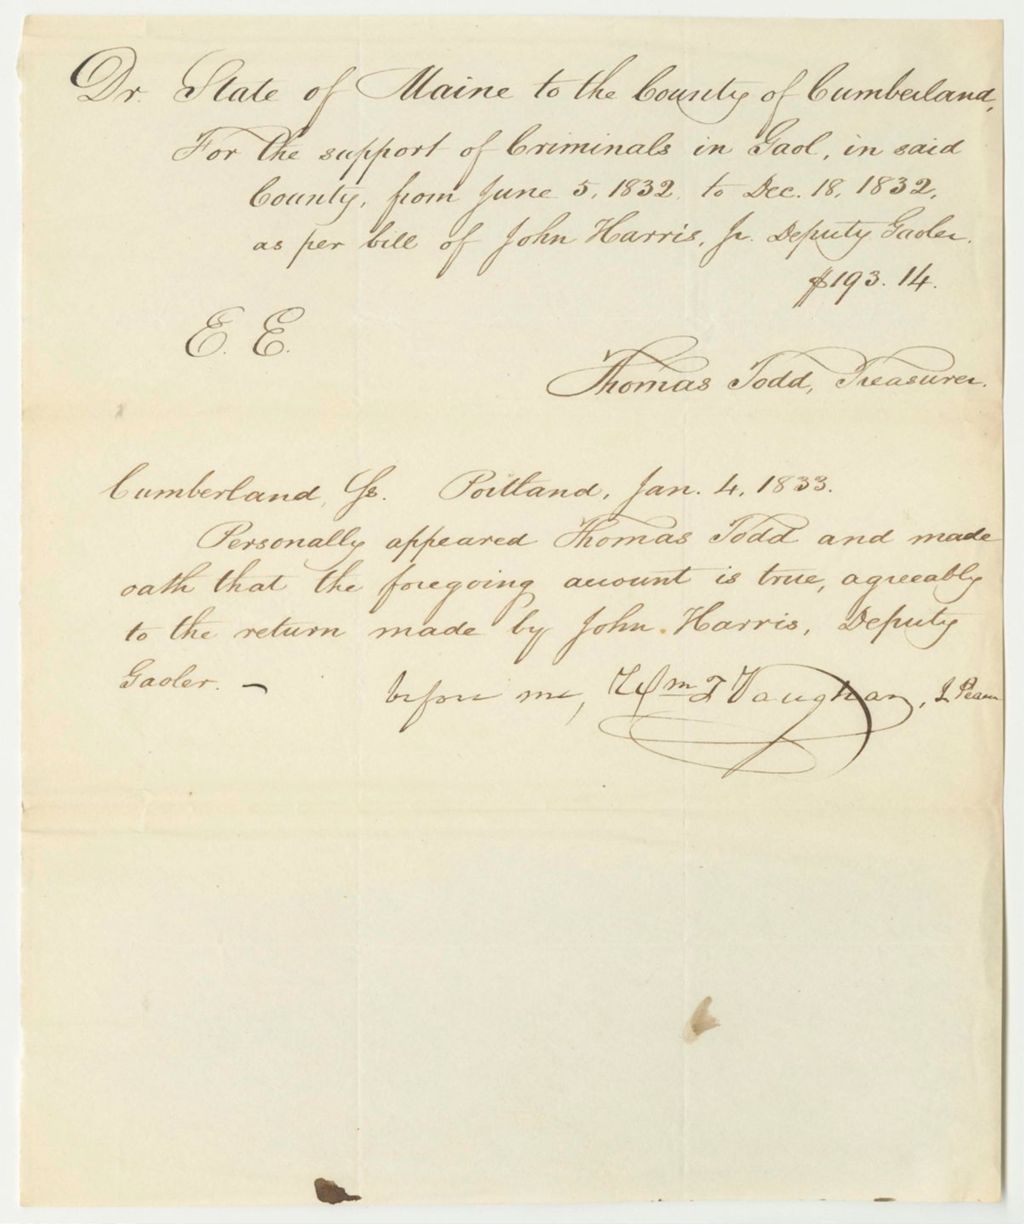 Dr. State of Maine to the County of Cumberland,
For the support of Criminals in Gaol, in said
County, from June 5, 1832, to Dec. 18, 1832,
as per bill of John Harris, Jr. Deputy Gaoler.
$193.14.
E. E.
Thomas Todd, Treasurer.
Cumberland, Ss. Portland, Jan. 4, 1833.
Personally appeared Thomas Todd and made
oath that the foregoing account is true, agreeably
to the return made by John Harris, Deputy
Gaoler. —
before me, Wm T Vaughan, J. Peace